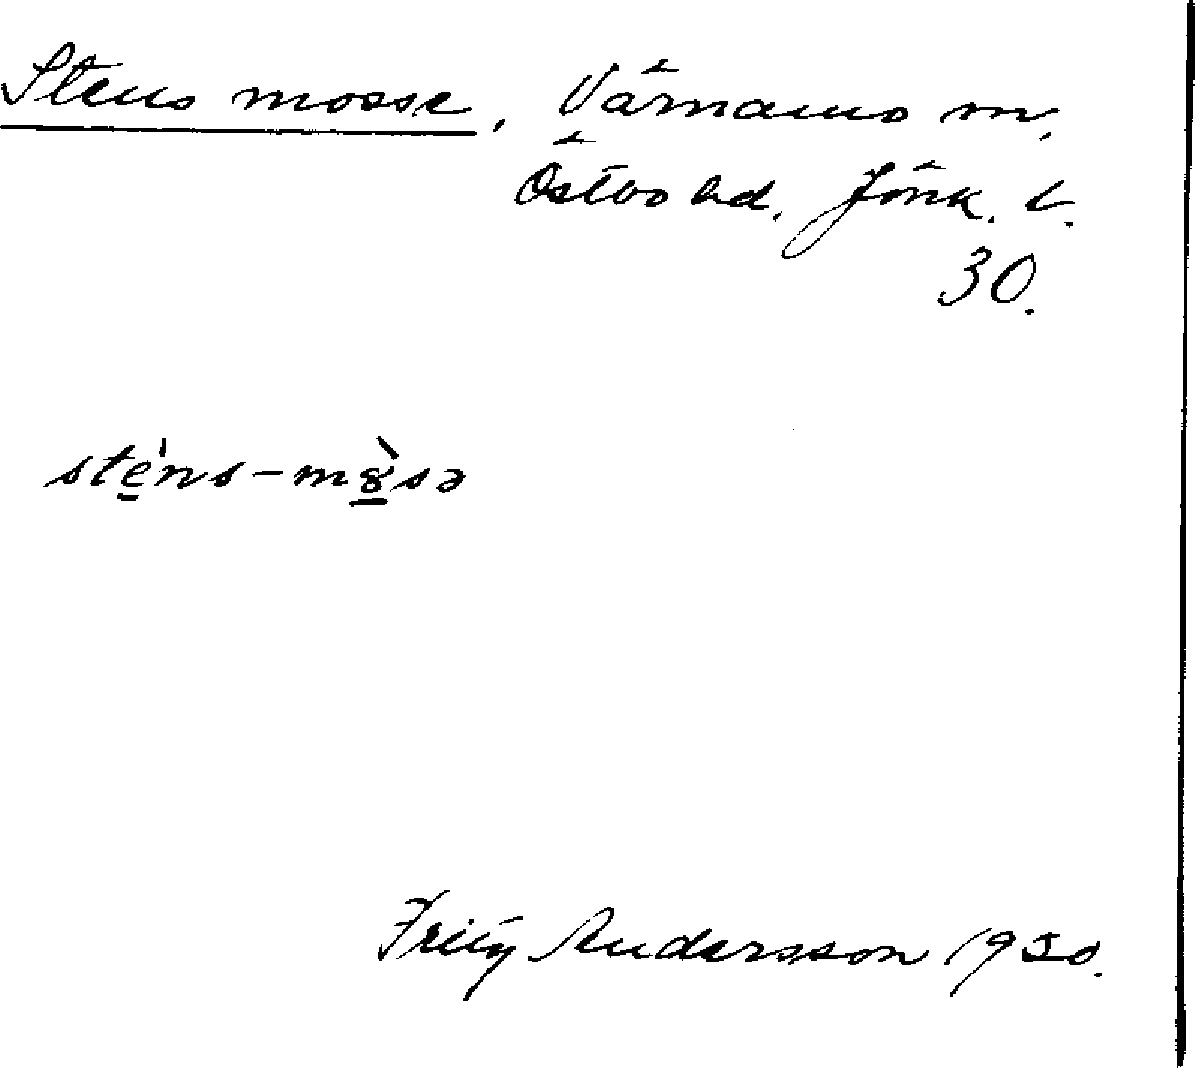 Stens mosse, Värnamo sn.
Östbo hd. Jönk. l.
30.
sté̱ns-mꝏ̱̀sə
Fritz Andersson 1930.